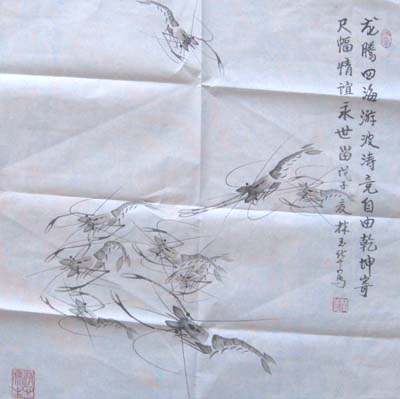 龙腾四海游波涛竞自由乾坤寄
尺幅情谊永世留戊子夏林玉